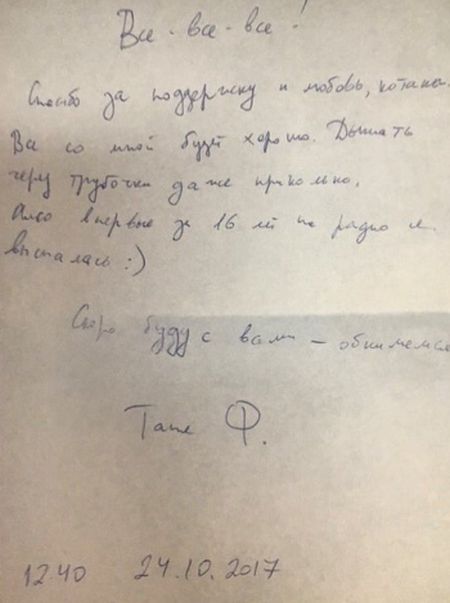 Все - все - все!
Спасибо за поддержку и любовь, котаны.
Все со мной будет хорошо. Дышать
через трубочки даже прикольно,
Алсо впервые за 16 лет на радио я
выспалась :)
Скоро буду с вами – обнимемся
Таня Ф.
12.40 24.10.2017